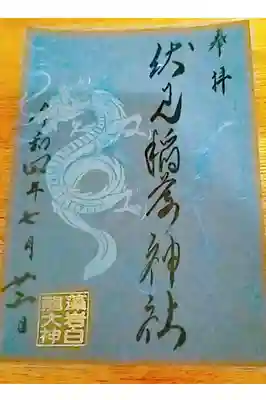 奉拝
伏見稲荷神社
令和四年七月廿日
藻岩白
龍大神